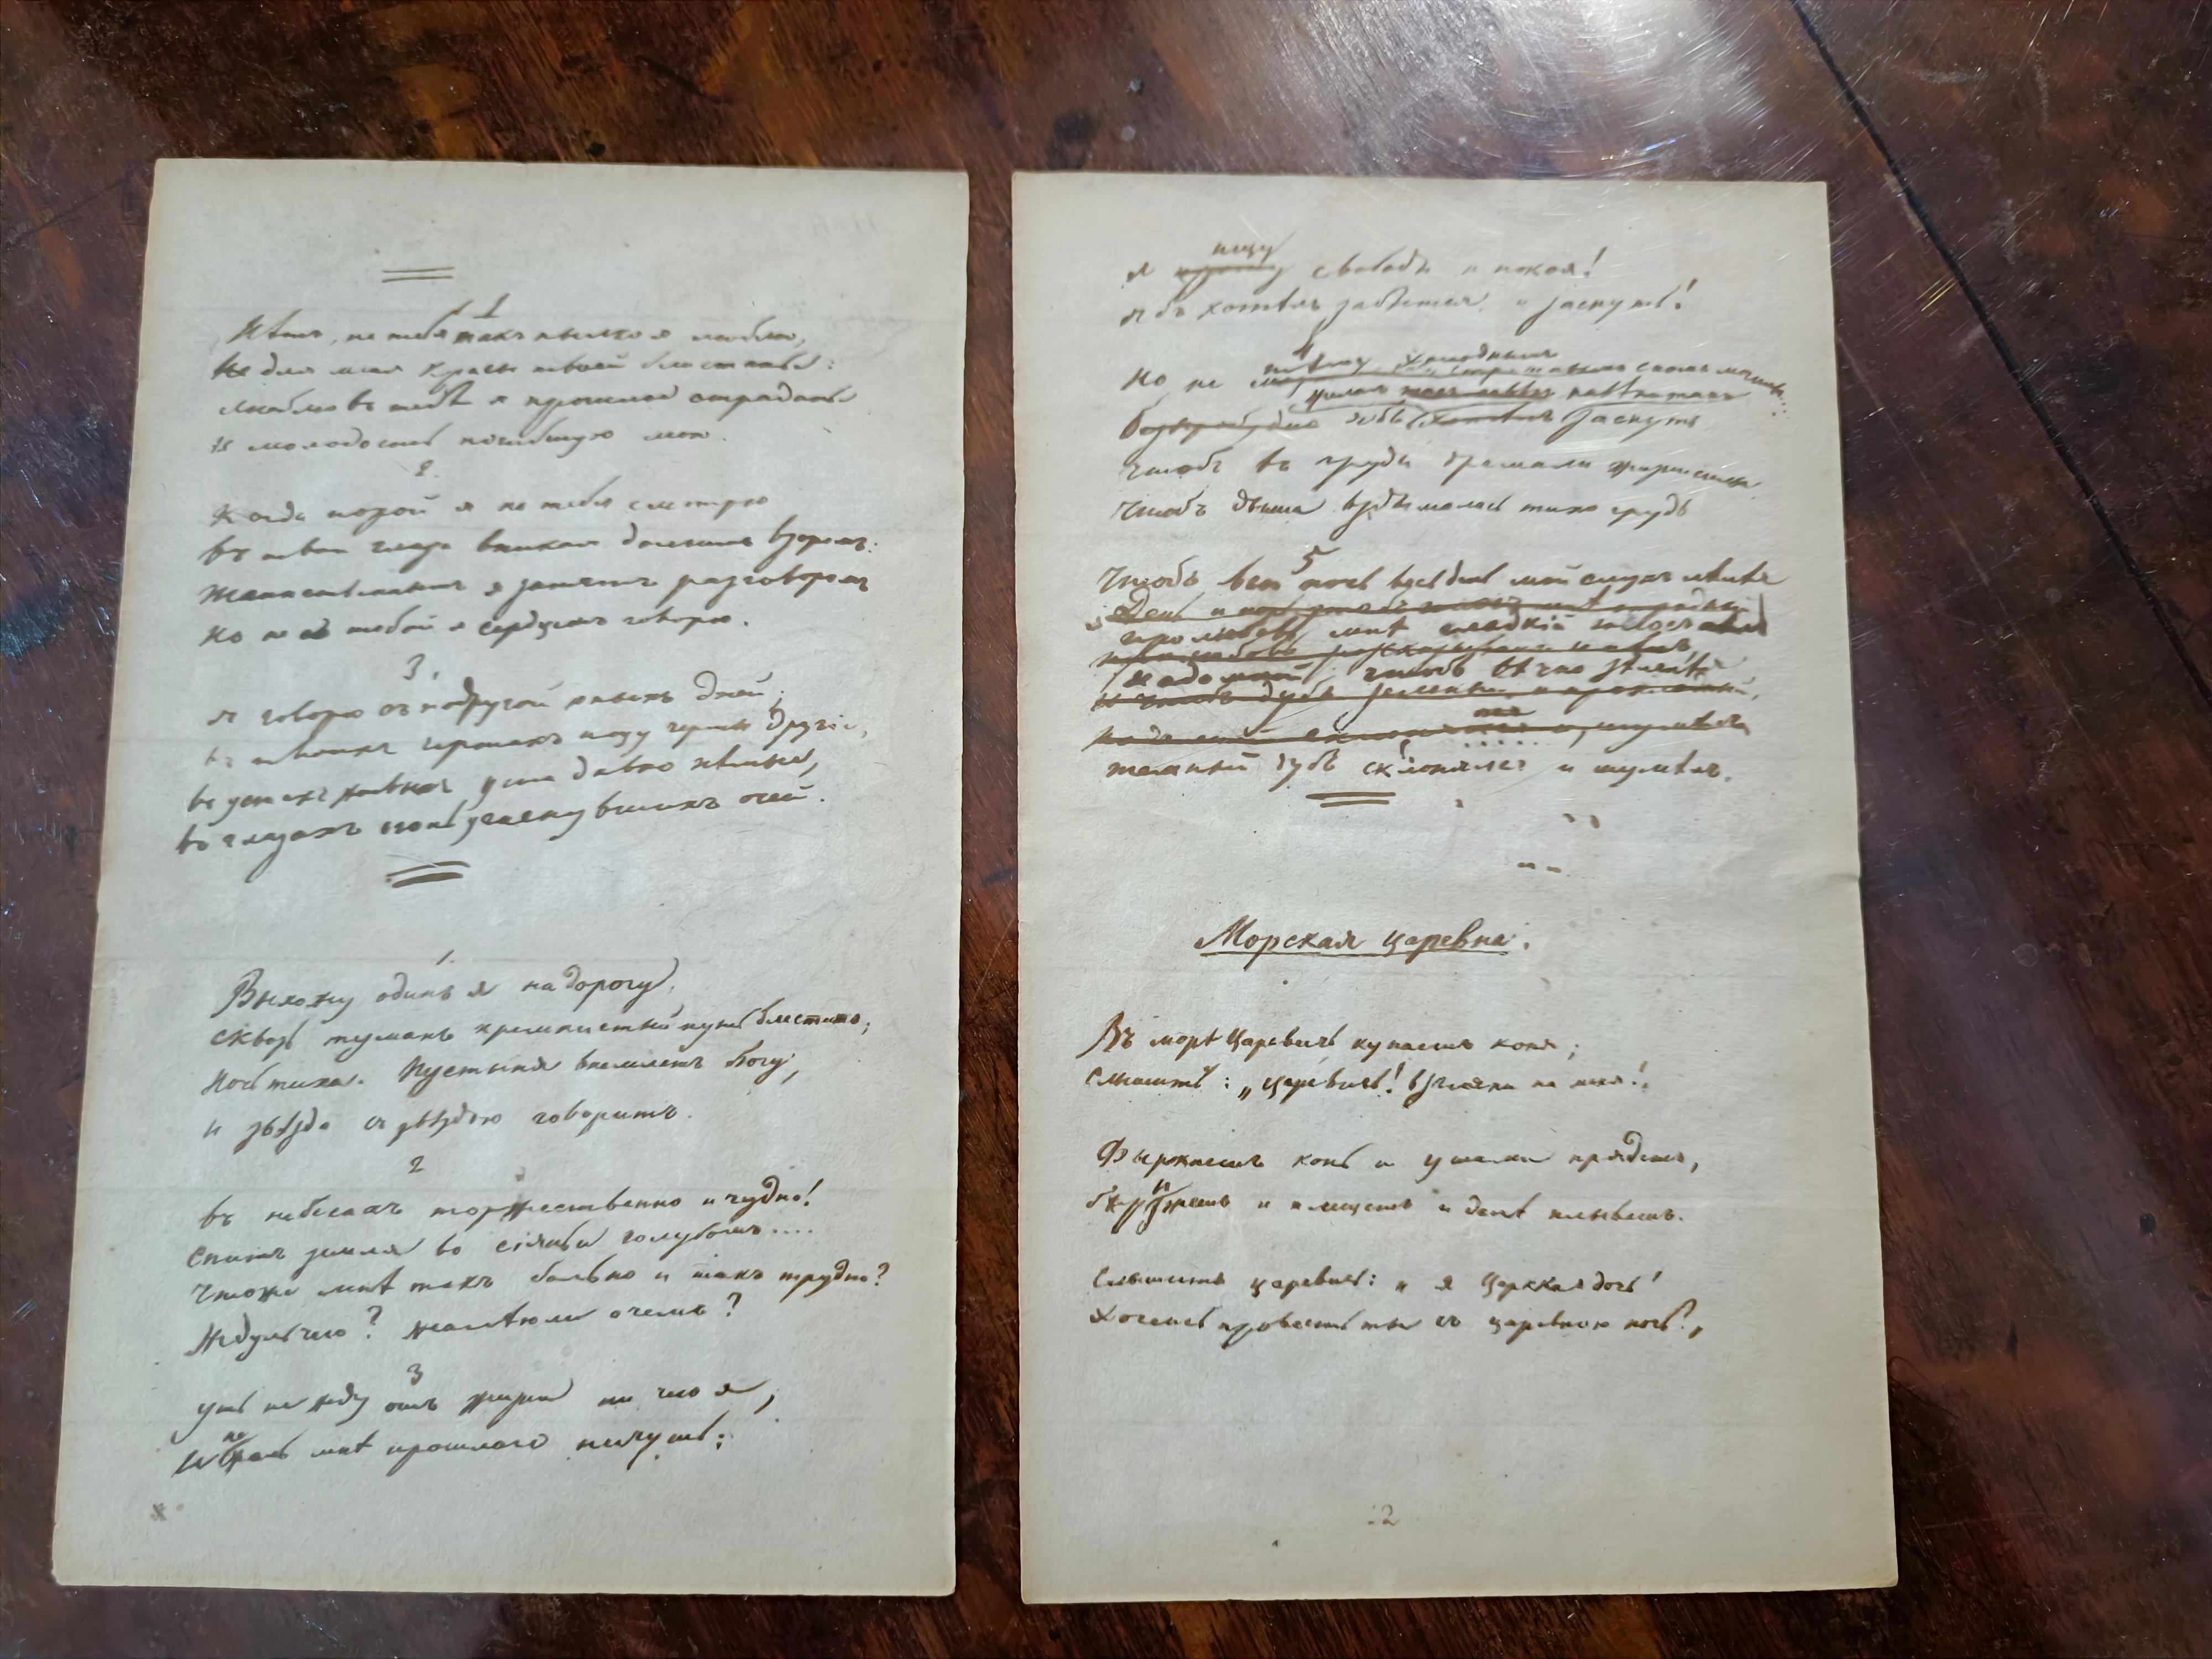 1
Нѣтъ, не тебя такъ пылко я люблю,
Не для меня красы твоей блистанье:
Люблю въ тебѣ я прошлое страданье
И молодость погибшую мою.
2.
Когда порой я на тебя смотрю
Въ твои глаза вникая долгимъ взоромъ:
Таинственнымъ я занятъ разговоромъ
Но не съ тобой я сердцемъ говорю.
3
Я говорю съ подругой юныхъ дней;
Въ твоихъ чертахъ ищу черты другіе,
Въ устахъ живыхъ уста давно нѣмые,
Въ глазахъ огонь угаснувшихъ очей.
1.
Выхожу одинъ я на дорогу.
Сквозь туманъ кремнистый путь блеститъ;
Ночь тиха. Пустыня внемлетъ Богу,
И звѣзда съ звѣздою говоритъ.
2
Въ небесахъ торжественно и чудно!
Спитъ земля въ сіяньи голубомъ....
Чтоже мнѣ такъ больно и такъ трудно?
Жду ль чего? жалѣю ли о чемъ?
3
Ужъ не жду отъ жизни ни чего я,
И не жаль мнѣ прошлаго ничуть;
ищу
Я свободы и покоя!
Я бъ хотѣлъ забыться и заснуть!
4
Но не тѣмъ холоднымъ сномъ могилы...
Я бъ желалъ навѣки такъ
заснуть
Чтобъ въ груди дремали жизни силы
Чтобъ дыша вздымалась тихо грудь
5
Чтобъ всю ночь весь день мой слухъ лѣлѣя
Про любовь мнѣ сладкій голосъ пѣлъ
Надо мной чтобъ вѣчно зеленѣя
Темный дубъ склонялся и шумѣлъ.
Морская царевна.
Въ морѣ Царевичъ купаетъ коня;
Слышитъ: „Царевичъ! взгляни на меня!„
Фыркаетъ конь и ушами прядетъ,
Брызжетъ и плещетъ и далѣ плыветъ.
Слышитъ царевичъ: „я Царская дочь!
Хочешь провесть ты съ царевною ночь?„
2